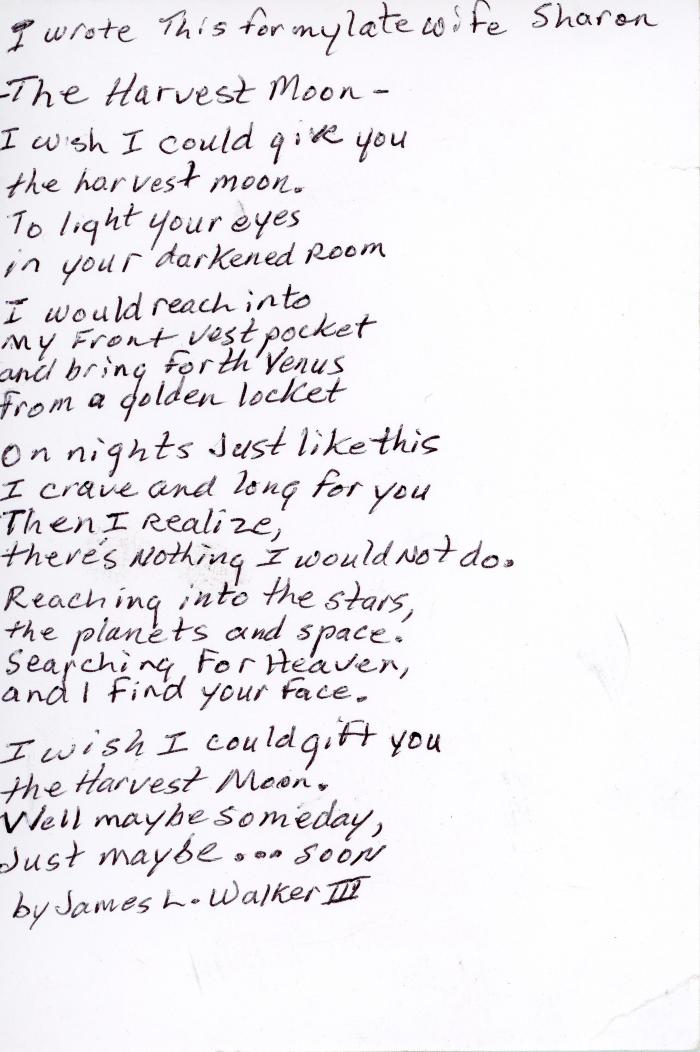 I wrote This for my late wife Sharon
-The Harvest Moon-
I wish I could give you
the harvest moon.
To light your eyes
in your darkened Room
I would reach into
my Front vest pocket
and bring forth Venus
from a golden locket
On nights Just like this
I crave and long for you
Then I Realize,
there's Nothing I would Not do.
Reaching into the stars,
the planets and space.
Searching For Heaven,
and I find your face.
I wish I could gift you
the Harvest Moon.
Well maybe someday,
Just maybe... soon
by James L. Walker III